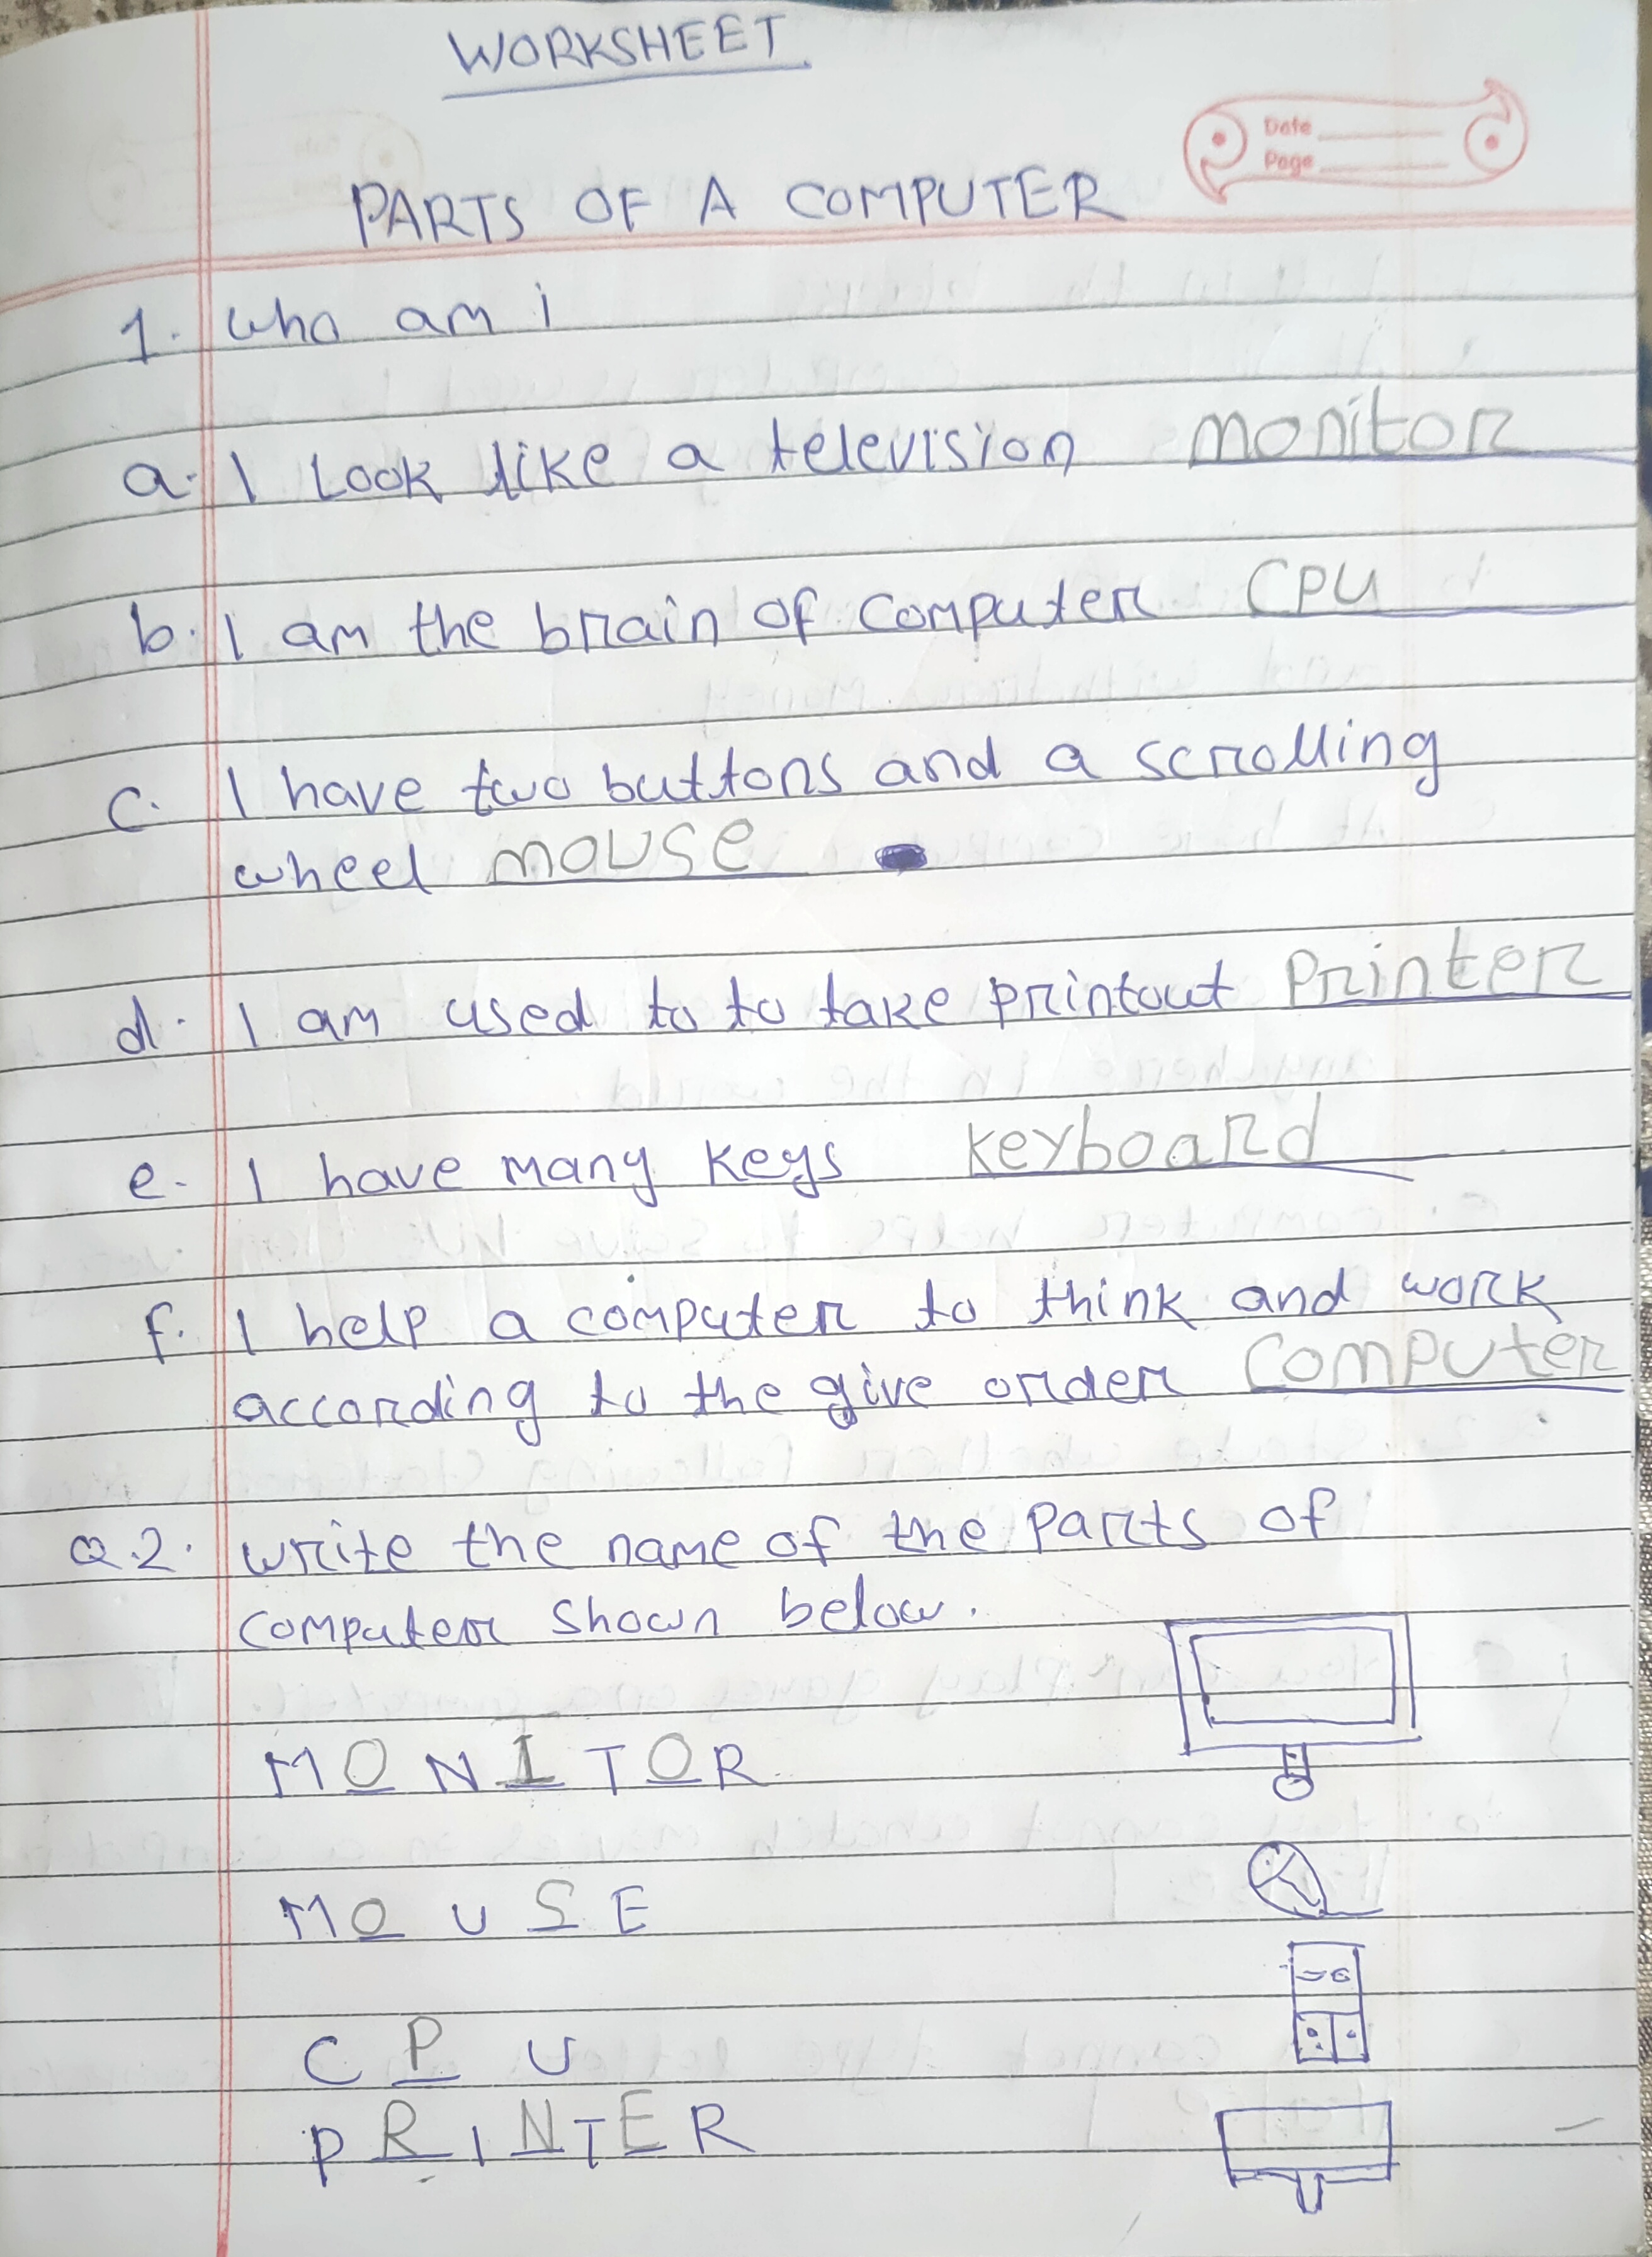 WORKSHEET
Date
Page
PARTS OF A COMPUTER
1. who am i
a. I Look like a television monitor
b. I am the brain of computer CPU
c. I have two buttons and a scrolling
wheel mouse
d. I am used to to take printout Printer
e. I have many keys keyboard
f. I help a computer to think and work
according to the give order Computer
Q.2. write the name of the parts of
computer shown below.
M O N I T O R
M O U S E
C P U
P R I N T E R